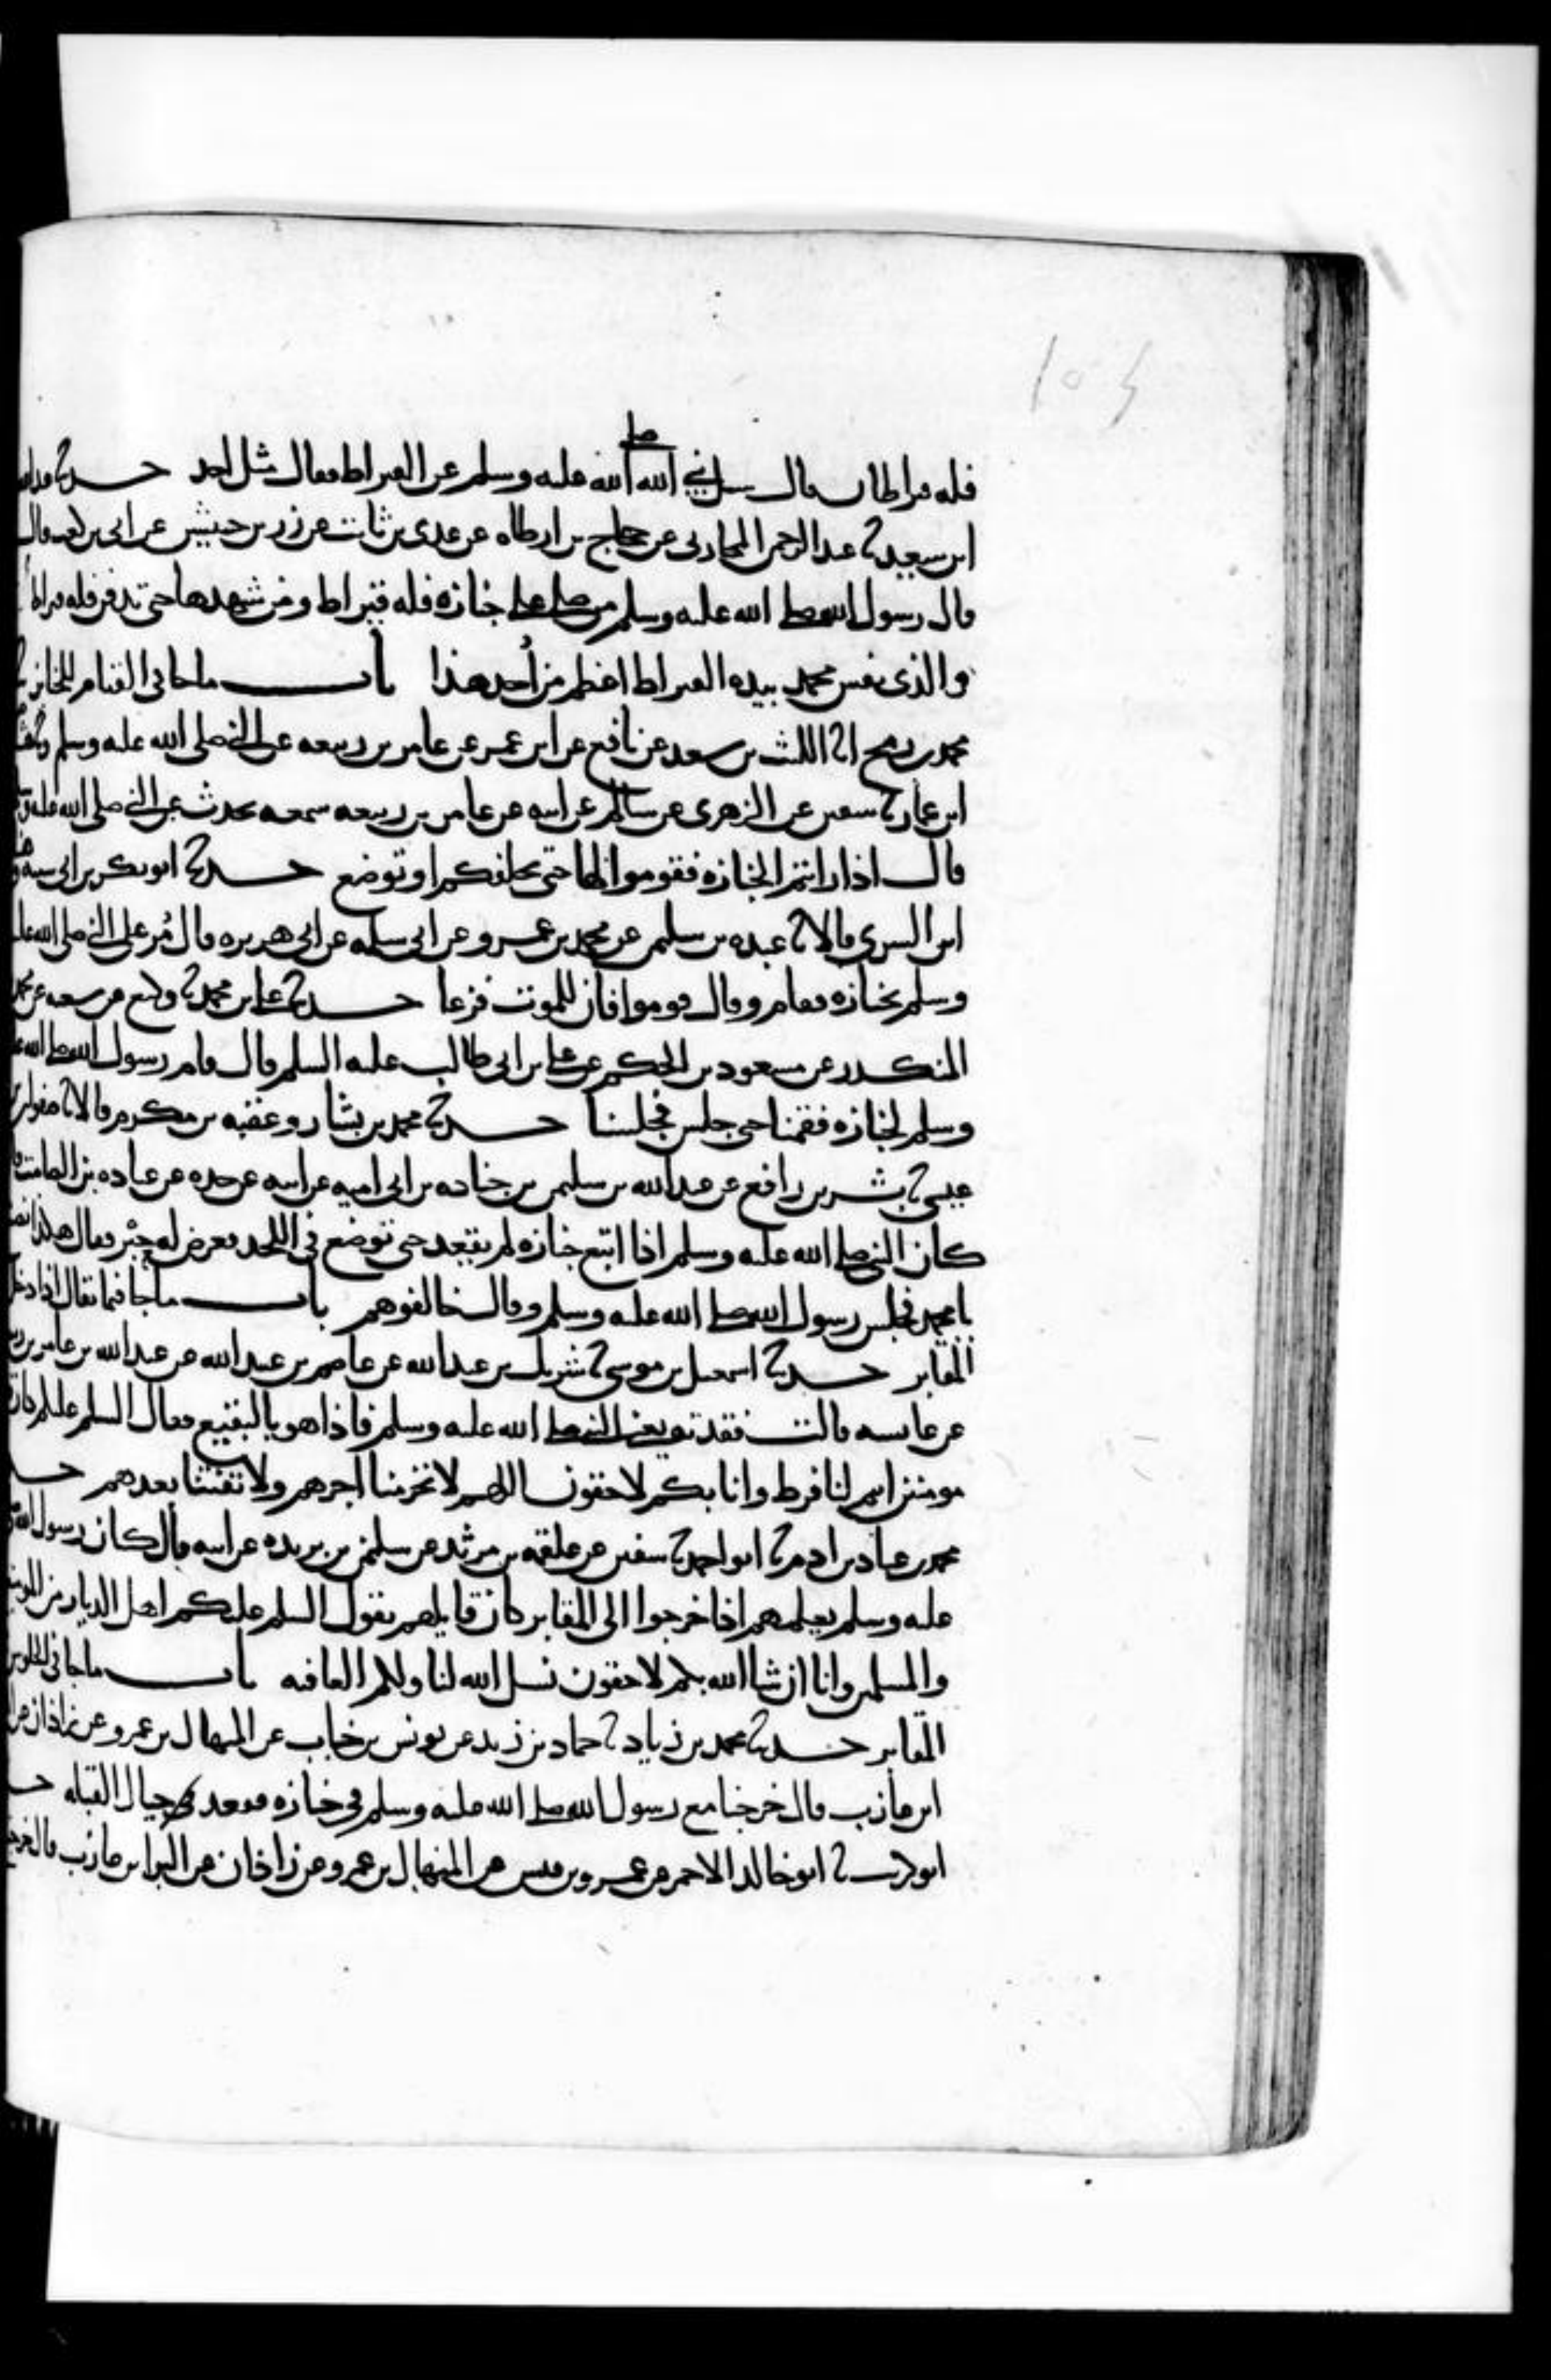 صلى
فله قيراطان قال سئل نبي الله الله عليه وسلم عن القيراط فقال مثل احد حدثنا عبد الله
ابن سعيد ثنا عبد الرحمن المحاربي عن حجاج بن ارطاه عن عدي بن ثابت عن زر بن حبيش عن ابي بن كعب قال
قال رسول الله صلى الله عليه وسلم من صلى على جنازه فله قيراط ومن شهدها حتى تدفن فله قيراطان
والذي نفس محمد بيده القيراط اعظم من أُحد هذا باب ما جا في القيام للجنازه
محمد بن رمح انا الليث بن سعد عن نافع عن ابن عمر عن عامر بن ربيعه عن النبي صلى الله عليه وسلم وثنا هشام
ابن عمار ثنا سفين عن الزهري عن سالم عن ابيه عن عامر بن ربيعه سمعه يحدث عن النبي صلى الله عليه وسلم
قال اذا رايتم الجنازه فقوموا لها حتى تخلفكم او توضع حدثنا ابو بكر بن ابي شيبه وهناد
ابن السري قالا ثنا عبده بن سليمن عن محمد بن عمرو عن ابي سلمه عن ابي هريره قال مُر على النبي صلى الله عليه
وسلم بجنازه فقام وقال قوموا فان للموت فزعا حدثنا علي بن محمد ثنا وكيع عن شعبه عن محمد
المنكدر عن مسعود بن الحكم عن علي بن ابي طالب عليه السلم قال قام رسول الله صلى الله عليه
وسلم لجنازه فقمنا حتى جلس فجلسنا حدثنا محمد بن بشار وعقبه بن مكرم قالا ثنا صفوان بن
عيسى ثنا بشر بن رافع عن عبد الله بن سليمن بن جناده بن ابي اميه عن ابيه عن جده عن عباده بن الصامت قال
كان النبي صلى الله عليه وسلم اذا اتبع جنازه لم يقعد حتى توضع في اللحد فعرض له حِبْر فقال هكذا نصنع
يا محمد فجلس رسول الله صلى الله عليه وسلم وقال خالفوهم باب ما جا فيما يقال اذا دخل
المقابر حدثنا اسمعيل بن موسى ثنا شريك بن عبد الله عن عاصم بن عبيد الله عن عبد الله بن عامر بن ربيعه
عن عايشه قالت فقدته يعني النبي صلى الله عليه وسلم فاذا هو بالبقيع فقال السلم عليكم دار قوم
مومنين انتم لنا فرط وانا بكم لاحقون اللهم لا تحرمنا اجرهم ولا تفتنا بعدهم حدثنا
محمد بن عباد بن ادم ثنا ابو احمد ثنا سفين عن علقمه بن مرثد عن سليمن بن بريده عن ابيه قال كان رسول الله صلى
عليه وسلم يعلمهم اذا خرجوا الى المقابر كان قايلهم يقول السلم عليكم اهل الديار من المومنين
والمسلمين وانا ان شا الله بكم لاحقون نسل الله لنا ولكم العافيه باب ما جا في الجلوس في
المقابر حدثنا محمد بن زياد ثنا حماد بن زيد عن يونس بن خباب عن المنهال بن عمرو عن زاذان عن البرا
ابن عازب قال خرجنا مع رسول الله صلى الله عليه وسلم في جنازه فقعد حيال القبله حدثنا
ابو كريب ثنا ابو خالد الاحمر عن عمرو بن قيس عن المنهال بن عمرو عن زاذان عن البرا بن عازب قال خرجنا